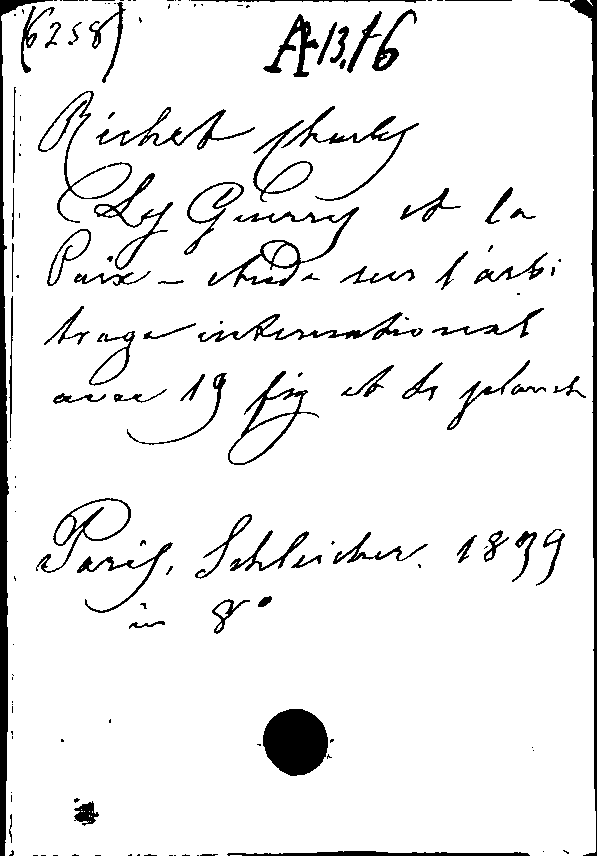 (6258) A-13.16
Richet Charles
Les Guerres et la
Paix - étude sur l'arbi
trage international
avec 19 fig et de planch
Paris, Schleicher. 1899
in 8°